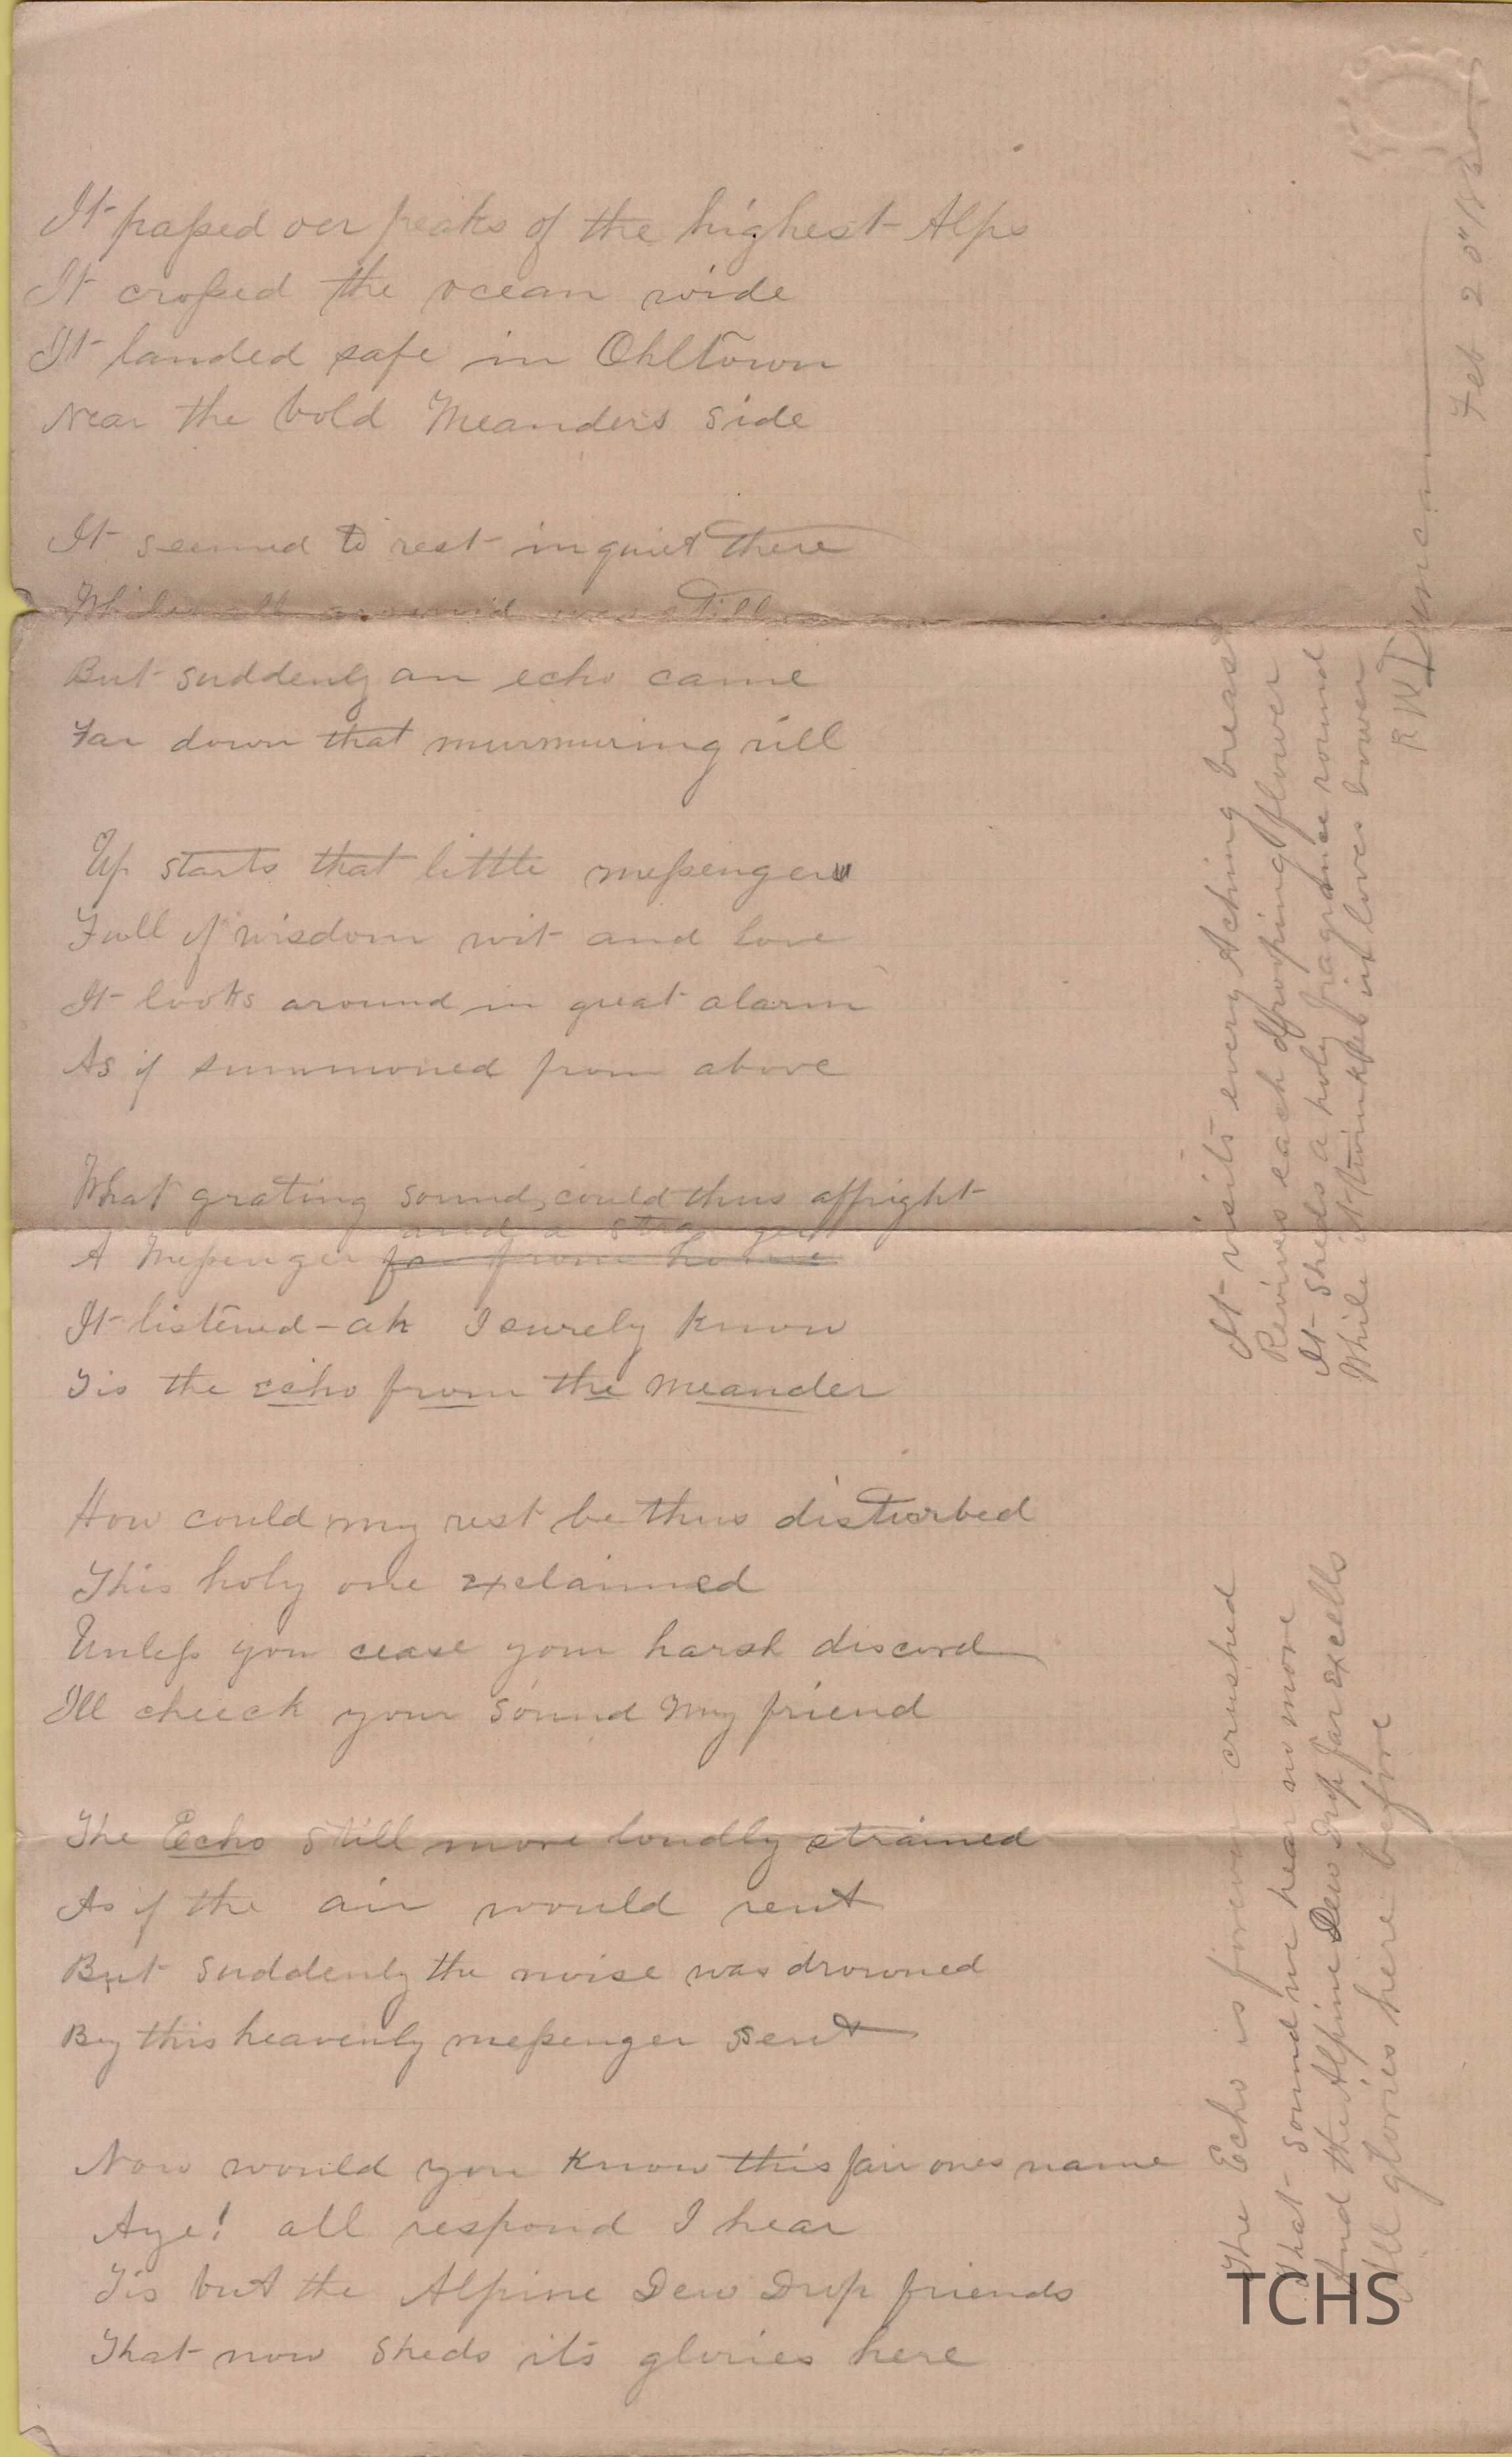 It passed oer peaks of the highest Alps
It crossed the ocean wide
It landed safe in Ohltown
Near the bold Meanders side
It seemed to rest in quiet there
While all around was still
But suddenly an echo came
Far down that murmuring rill
Up starts that little messenger
Full of wisdom wit and love
It looks around in great alarm
As if summoned from above
What grating sound, could thus affright
and a
A Messenger from home
It listened - ah I surely know
Tis the echo from the meander
How could my rest be thus disturbed
This holy one exclaimed
Unless you cease your harsh discord
Ill cheeck your sound my friend
The Echo still more loudly strained
As if the air would rent
But suddenly the noise was drowned
By this heavenly messenger sent
Now would you know this fair ones name
Aye! all respond I hear
Tis but the Alpine Dew Drop friends
That now sheds its glories here
The Echo is forever crushed
That sound we hear no more
And the Alpine Dew Drop far excells
All glories here before
It visits every Aching breast
Revives each drooping flower
It sheds a holy fragrance round
While it twinkles in loves bower
R W
Feb 20"
TCHS